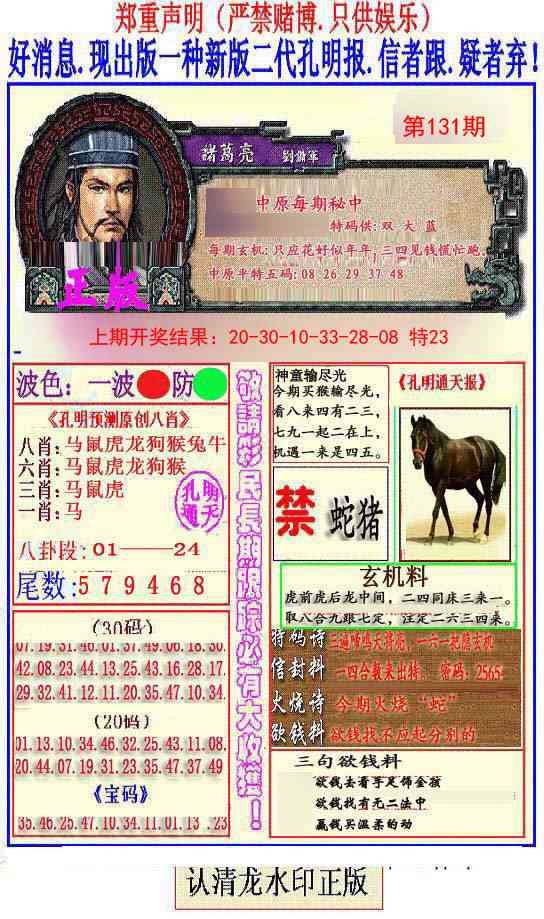 郑重声明（严禁赌博.只供娱乐）
好消息.现出版一种新版二代孔明报.信者跟.疑者弃!
第131期
諸葛亮 劉備軍
中原每期秘中
特码供:双 大 蓝
每期玄机:只应花好似年年,三四见钱慌忙跑.
中原平特五码:08 26 29 37 48
正版
上期开奖结果: 20-30-10-33-28-08 特23
波色: 一波 防
《孔明预测原创八肖》
八肖:马鼠虎龙狗猴兔牛
六肖:马鼠虎龙狗猴
三肖:马鼠虎
一肖:马
孔明
通天
八卦段:01——24
尾数:579468
(30码)
07.19.31.46.01.37.49.06.18.30.
42.08.23.44.13.25.43.16.28.17.
29.32.41.12.11.20.35.47.10.34.
(20码)
01.13.10.34.46.32.25.43.11.08.
20.44.07.19.31.23.35.47.37.49
《宝码》
35.46.25.47.10.34.11.01.13 .23
敬請彩民長期跟踪必有大收獲!
神童输尽光
今期买猴输尽光,
看八来四有二三,
七九一起二在上,
机遇一来是四五。
《孔明通天报》
禁 蛇猪
玄机料
虎前虎后龙中间，二四同床三来一。
取八合九跟七定，注定二六三四来。
特码诗 三遍啼鸣天将亮，一六一起隐玄机
信封料 一四合数来出特. 密码: 2565.
火烧诗 今期火烧“蛇”
欲钱料 欲钱找不应起分别的
三句欲钱料
欲钱去看手足饰金孩
欲钱找有无二法中
赢钱买温柔的动
认清龙水印正版